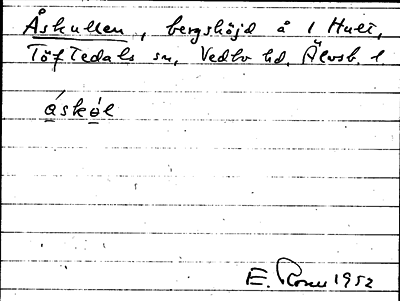 Åskullen, bergshöjd å 1 Hult,
Töftedals sn, Vedbo hd, Älvsb. l
åskəl
E. 1952